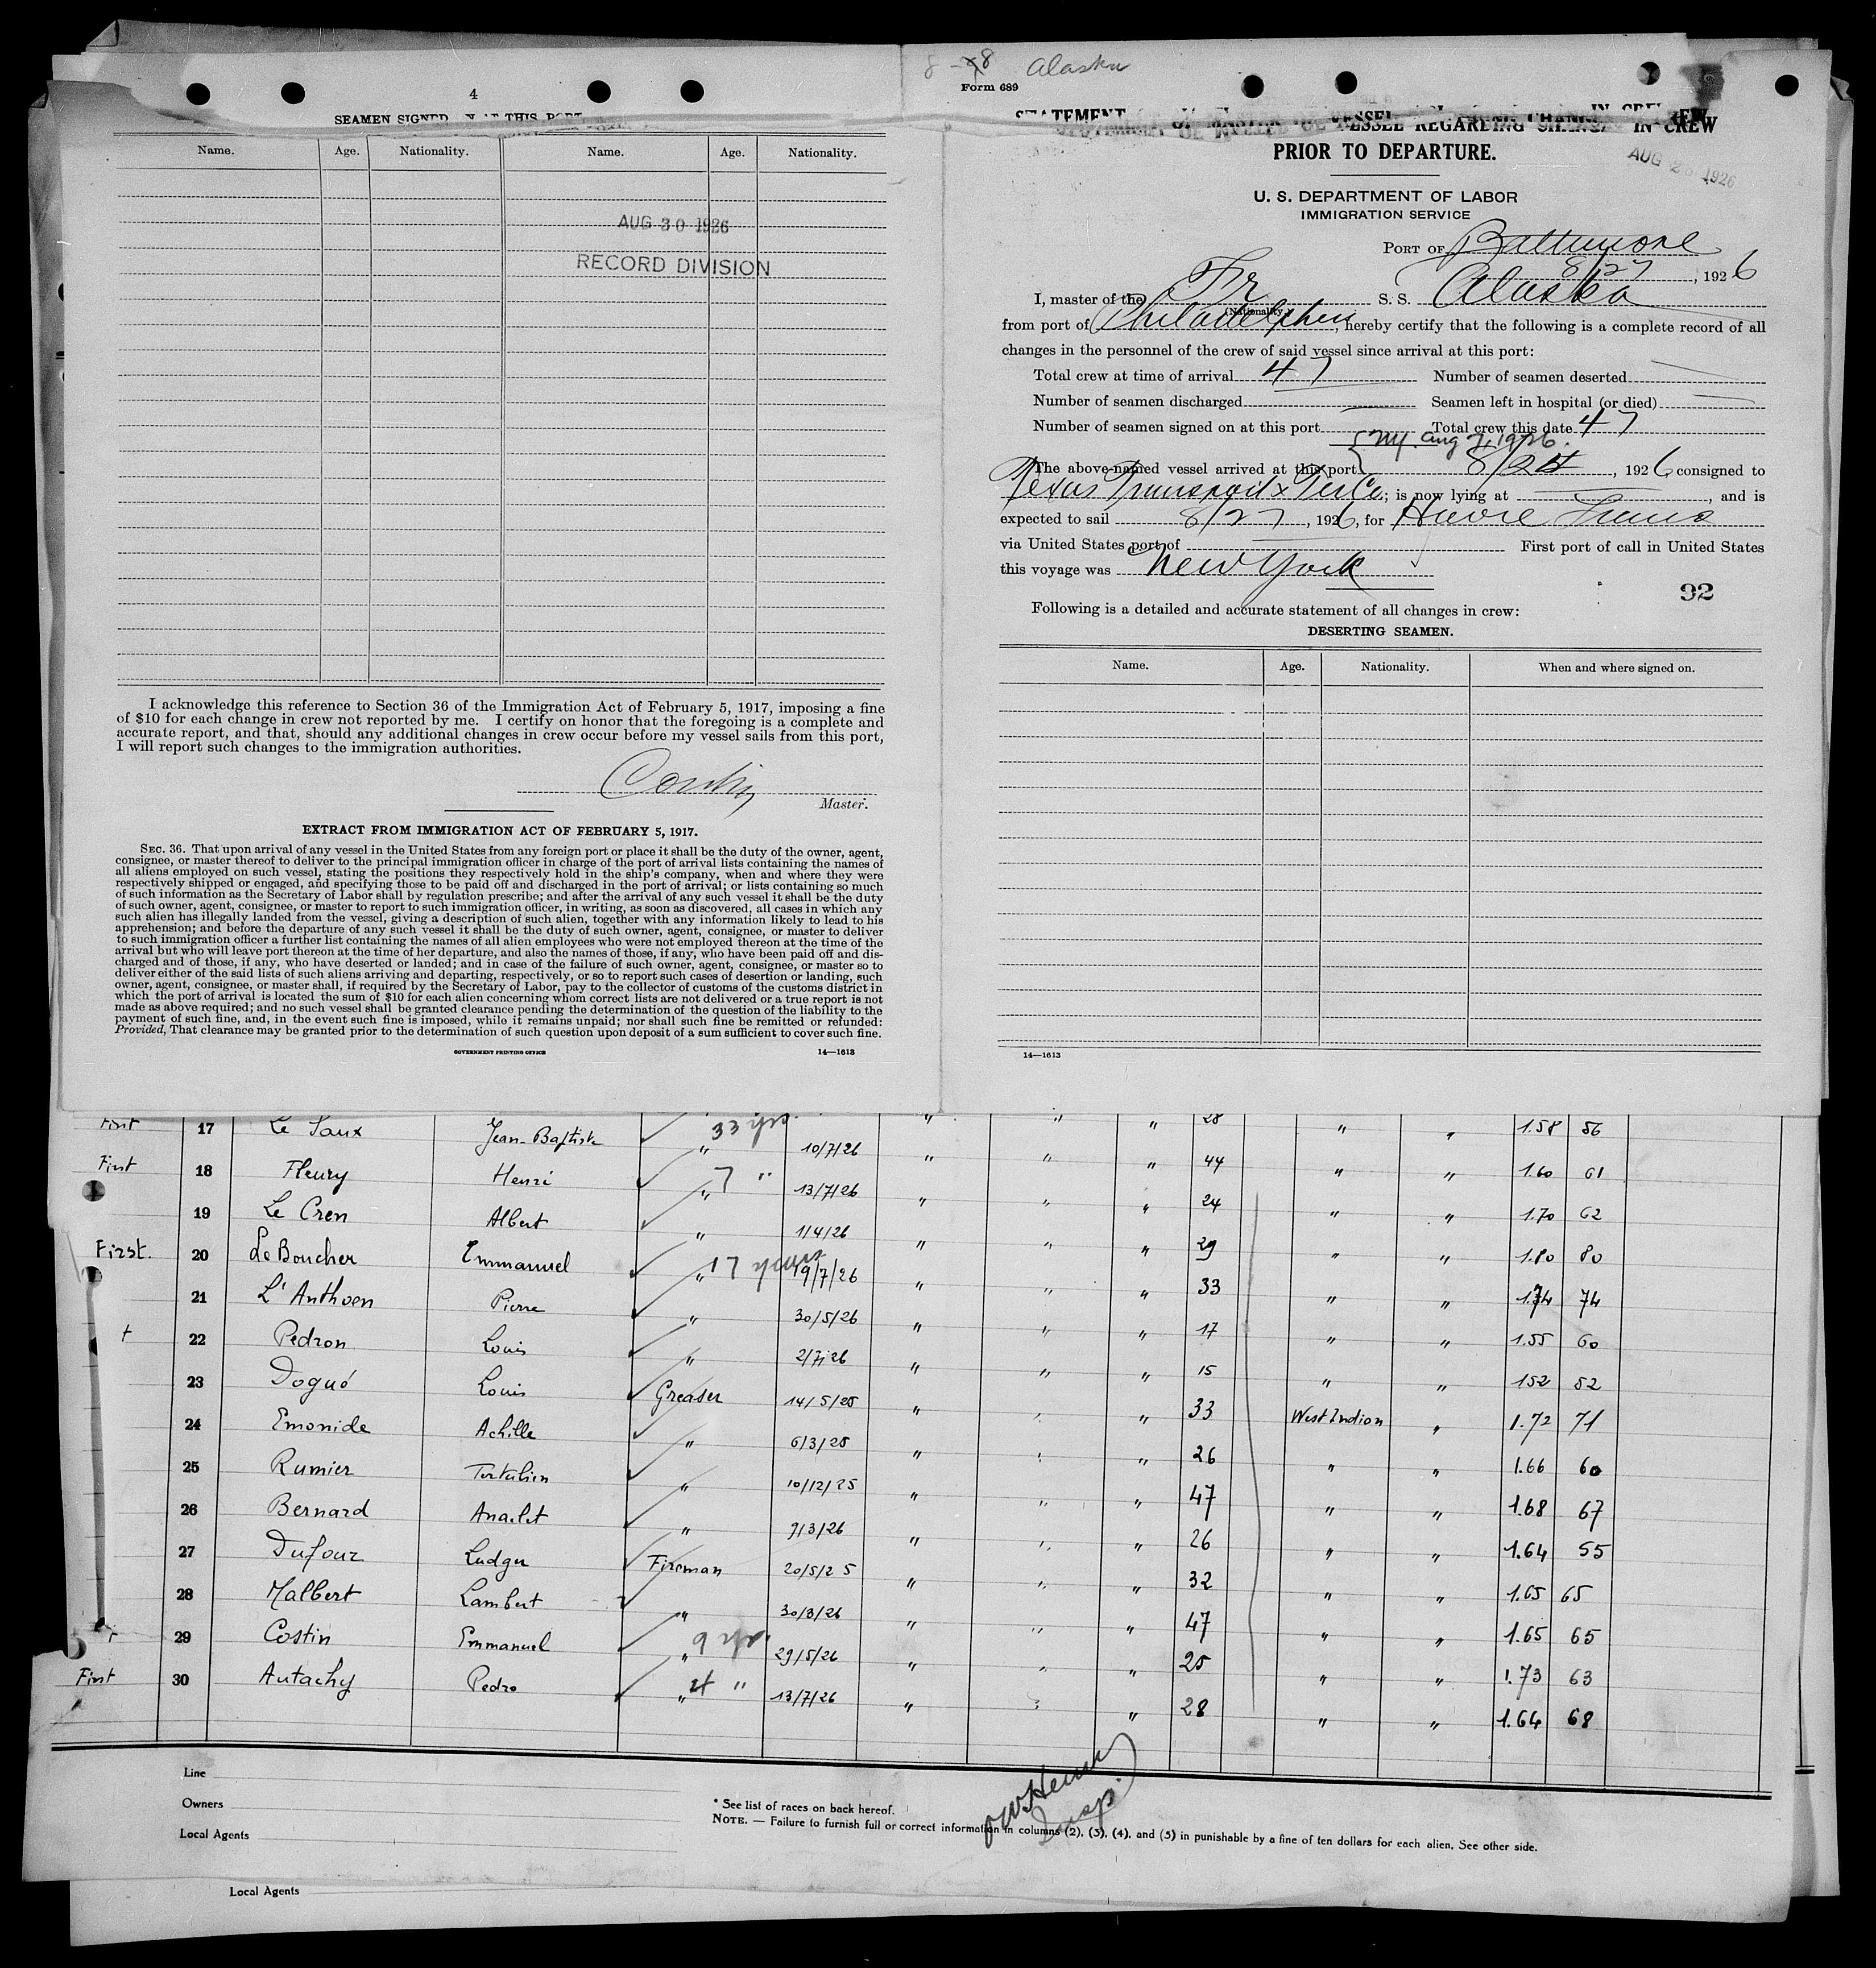 4
SEAMEN SIGNED THIS PORT
Name. Age. Nationality. Name. Age. Nationality.
AUG 30 1926
RECORD DIVISION
I acknowledge this reference to Section 36 of the Immigration Act of February 5, 1917, imposing a fine
of $10 for each change in crew not reported by me. I certify on honor that the foregoing is a complete and
accurate report, and that, should any additional changes in crew occur before my vessel sails from this port,
I will report such changes to the immigration authorities.
Master.
EXTRACT FROM IMMIGRATION ACT OF FEBRUARY 5, 1917.
SEC. 36. That upon arrival of any vessel in the United States from any foreign port or place it shall be the duty of the owner, agent,
consignee, or master thereof to deliver to the principal immigration officer in charge of the port of arrival lists containing the names of
all aliens employed on such vessel, stating the positions they respectively hold in the ship's company, when and where they were
respectively shipped or engaged, and specifying those to be paid off and discharged in the port of arrival; or lists containing so much
of such information as the Secretary of Labor shall by regulation prescribe; and after the arrival of any such vessel it shall be the duty
of such owner, agent, consignee, or master to report to such immigration officer, in writing, as soon as discovered, all cases in which any
such alien has illegally landed from the vessel, giving a description of such alien, together with any information likely to lead to his
apprehension; and before the departure of any such vessel it shall be the duty of such owner, agent, consignee, or master to deliver
to such immigration officer a further list containing the names of all alien employees who were not employed thereon at the time of the
arrival but who will leave port thereon at the time of her departure, and also the names of those, if any, who have been paid off and dis-
charged and of those, if any, who have deserted or landed; and in case of the failure of such owner, agent, consignee, or master so to
deliver either of the said lists of such aliens arriving and departing, respectively, or so to report such cases of desertion or landing, such
owner, agent, consignee, or master shall, if required by the Secretary of Labor, pay to the collector of customs of the customs district in
which the port of arrival is located the sum of $10 for each alien concerning whom correct lists are not delivered or a true report is not
made as above required; and no such vessel shall be granted clearance pending the determination of the question of the liability to the
payment of such fine, and, in the event such fine is imposed, while it remains unpaid; nor shall such fine be remitted or refunded:
Provided, That clearance may be granted prior to the determination of such question upon deposit of a sum sufficient to cover such fine.
GOVERNMENT PRINTING OFFICE 14—1613
Alaska
Form 689
STATEMENT OF MASTER OF VESSEL REGARDING CHANGES IN CREW
PRIOR TO DEPARTURE.
AUG 1926
U. S. DEPARTMENT OF LABOR
IMMIGRATION SERVICE
PORT OF Baltimore
8/27, 1926
I, master of the Fr S. S. Alaska
(Nationality.)
from port of Philadelphia, hereby certify that the following is a complete record of all
changes in the personnel of the crew of said vessel since arrival at this port:
Total crew at time of arrival 47 Number of seamen deserted
Number of seamen discharged Seamen left in hospital (or died)
Number of seamen signed on at this port Total crew this date 47
NY. Aug 7, 1926.
The above-named vessel arrived at this port 8/24, 1926 consigned to
Texas Transport & Ter Co; is now lying at , and is
expected to sail 8/27, 1926, for Havre
via United States port of First port of call in United States
this voyage was New York
92
Following is a detailed and accurate statement of all changes in crew:
DESERTING SEAMEN.
Name. Age. Nationality. When and where signed on.
14—1613
First 17 Le Saux Jean-Baptiste 33 yrs. " 10/7/26 " " " 28 " " 1.58 56
First 18 Fleury Henri 7 " " 13/7/26 " " " 44 " " 1.60 61
19 Le Cren Albert " 1/4/26 " " " 24 " " 1.70 62
First. 20 Le Boucher Emmanuel 17 years " 19/7/26 " " " 29 " " 1.80 80
21 L'Anthoen Pierre " 30/5/26 " " " 33 " " 1.74 74
22 Pedron Louis " 2/7/26 " " " 17 " " 1.55 60
23 Dogué Louis Greaser 14/5/25 " " " 15 " " 152 52
24 Emonide Achille " 6/3/25 " " " 33 West Indian " 1.72 71
25 Rumier Tertulien " 10/12/25 " " " 26 " " 1.66 60
26 Bernard Anaclet " 9/3/26 " " " 47 " " 1.68 67
27 Dufour Ludger Fireman 20/5/25 " " " 26 " " 1.64 55
28 Malbert Lambert " 30/3/26 " " " 32 " " 1.65 65
29 Costin Emmanuel 9 yrs. " 29/5/26 " " " 47 " " 1.65 65
First 30 Autachy Pedro 4 " " 13/7/26 " " " 25 " " 1.73 63
" 28 " " 1.64 68
Line
Owners
Local Agents
* See list of races on back hereof.
NOTE. — Failure to furnish full or correct information in columns (2), (3), (4), and (5) in punishable by a fine of ten dollars for each alien, See other side.
Insp.
Local Agents